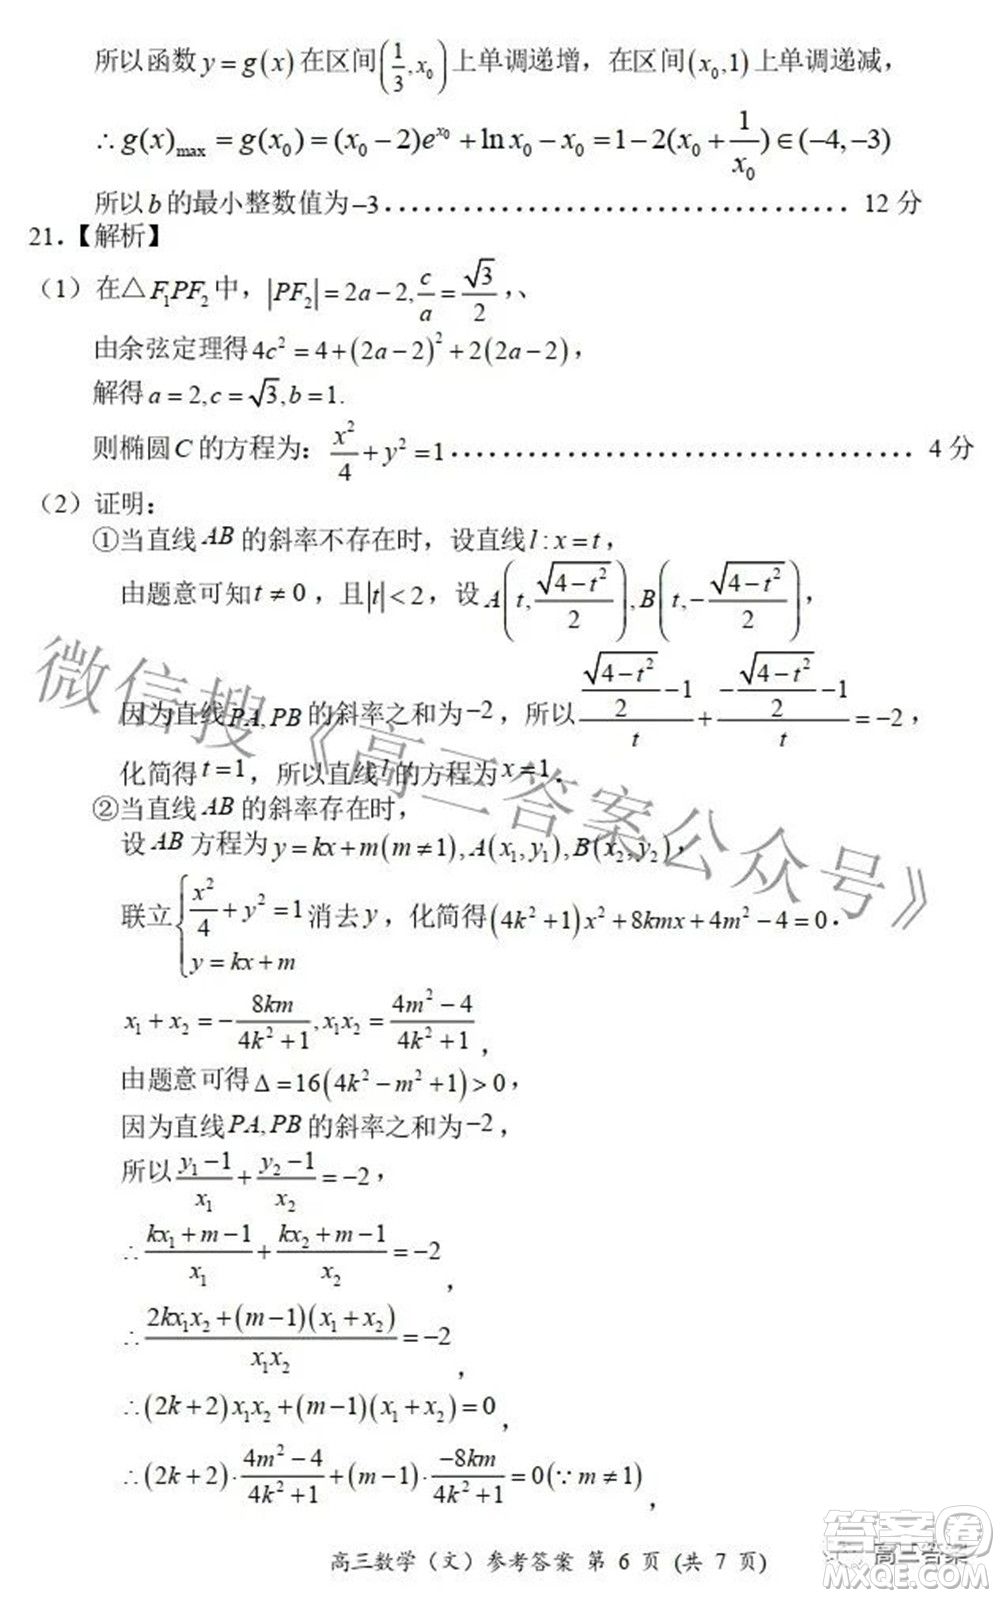 所以函数 y = g(x) 在区间(1/3, x₀)上单调递增，在区间(x₀,1)上单调递减，
∴g(x)max = g(x₀) = (x₀−2)e^x₀ + ln x₀ − x₀ = 1−2(x₀ + 1/x₀) ∈ (−4,−3)
所以 b 的最小整数值为−3 ······························ 12 分
21.【解析】
（1）在△F₁PF₂中，|PF₂| = 2a−2, c/a = √3/2，、
由余弦定理得 4c² = 4+(2a−2)²+2(2a−2)，
解得 a = 2, c = √3, b = 1.
则椭圆 C 的方程为：x²/4 + y² = 1 ······························ 4 分
（2）证明：
①当直线 AB 的斜率不存在时，设直线 l : x = t，
由题意可知 t ≠ 0，且|t| < 2，设 A(t, √(4−t²)/2), B(t, −√(4−t²)/2)，
因为直线 PA, PB 的斜率之和为−2，所以 (√(4−t²)/2 −1)/t + (−√(4−t²)/2 −1)/t = −2，
化简得 t = 1，所以直线 l 的方程为 x = 1.
②当直线 AB 的斜率存在时，
设 AB 方程为 y = kx + m(m ≠ 1), A(x₁, y₁), B(x₂, y₂)，
联立{x²/4 + y² = 1, y = kx + m 消去 y，化简得(4k²+1)x²+8kmx+4m²−4 = 0.
x₁ + x₂ = −8km/(4k²+1), x₁x₂ = (4m²−4)/(4k²+1)，
由题意可得 Δ = 16(4k²−m²+1) > 0，
因为直线 PA, PB 的斜率之和为−2，
所以 (y₁−1)/x₁ + (y₂−1)/x₂ = −2，
∴(kx₁+m−1)/x₁ + (kx₂+m−1)/x₂ = −2，
∴(2kx₁x₂+(m−1)(x₁+x₂))/(x₁x₂) = −2，
∴(2k+2)x₁x₂+(m−1)(x₁+x₂) = 0，
∴(2k+2)·(4m²−4)/(4k²+1)+(m−1)·(−8km)/(4k²+1) = 0(∵m ≠ 1)，
高三数学（文）参考答案 第 6 页 (共 7 页)
微信搜《高三答案公众号》
答案圈
高三答案